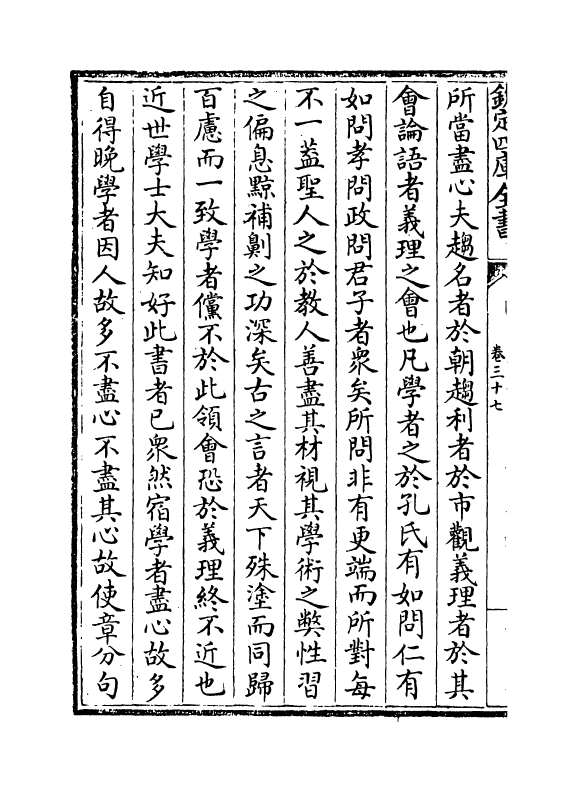 欽定四庫全書
卷三十七
所當盡心夫趨名者於朝趨利者於市觀義理者於其
會論語者義理之會也凡學者之於孔氏有如問仁有
如問孝問政問君子者衆矣所問非有更端而所對每
不一葢聖人之於教人善盡其材視其學術之弊性習
之偏息黥補劓之功深矣古之言者天下殊塗而同歸
百慮而一致學者儻不於此領會恐於義理終不近也
近世學士大夫知好此書者已衆然宿學者盡心故多
自得晚學者因人故多不盡心不盡其心故使章分句